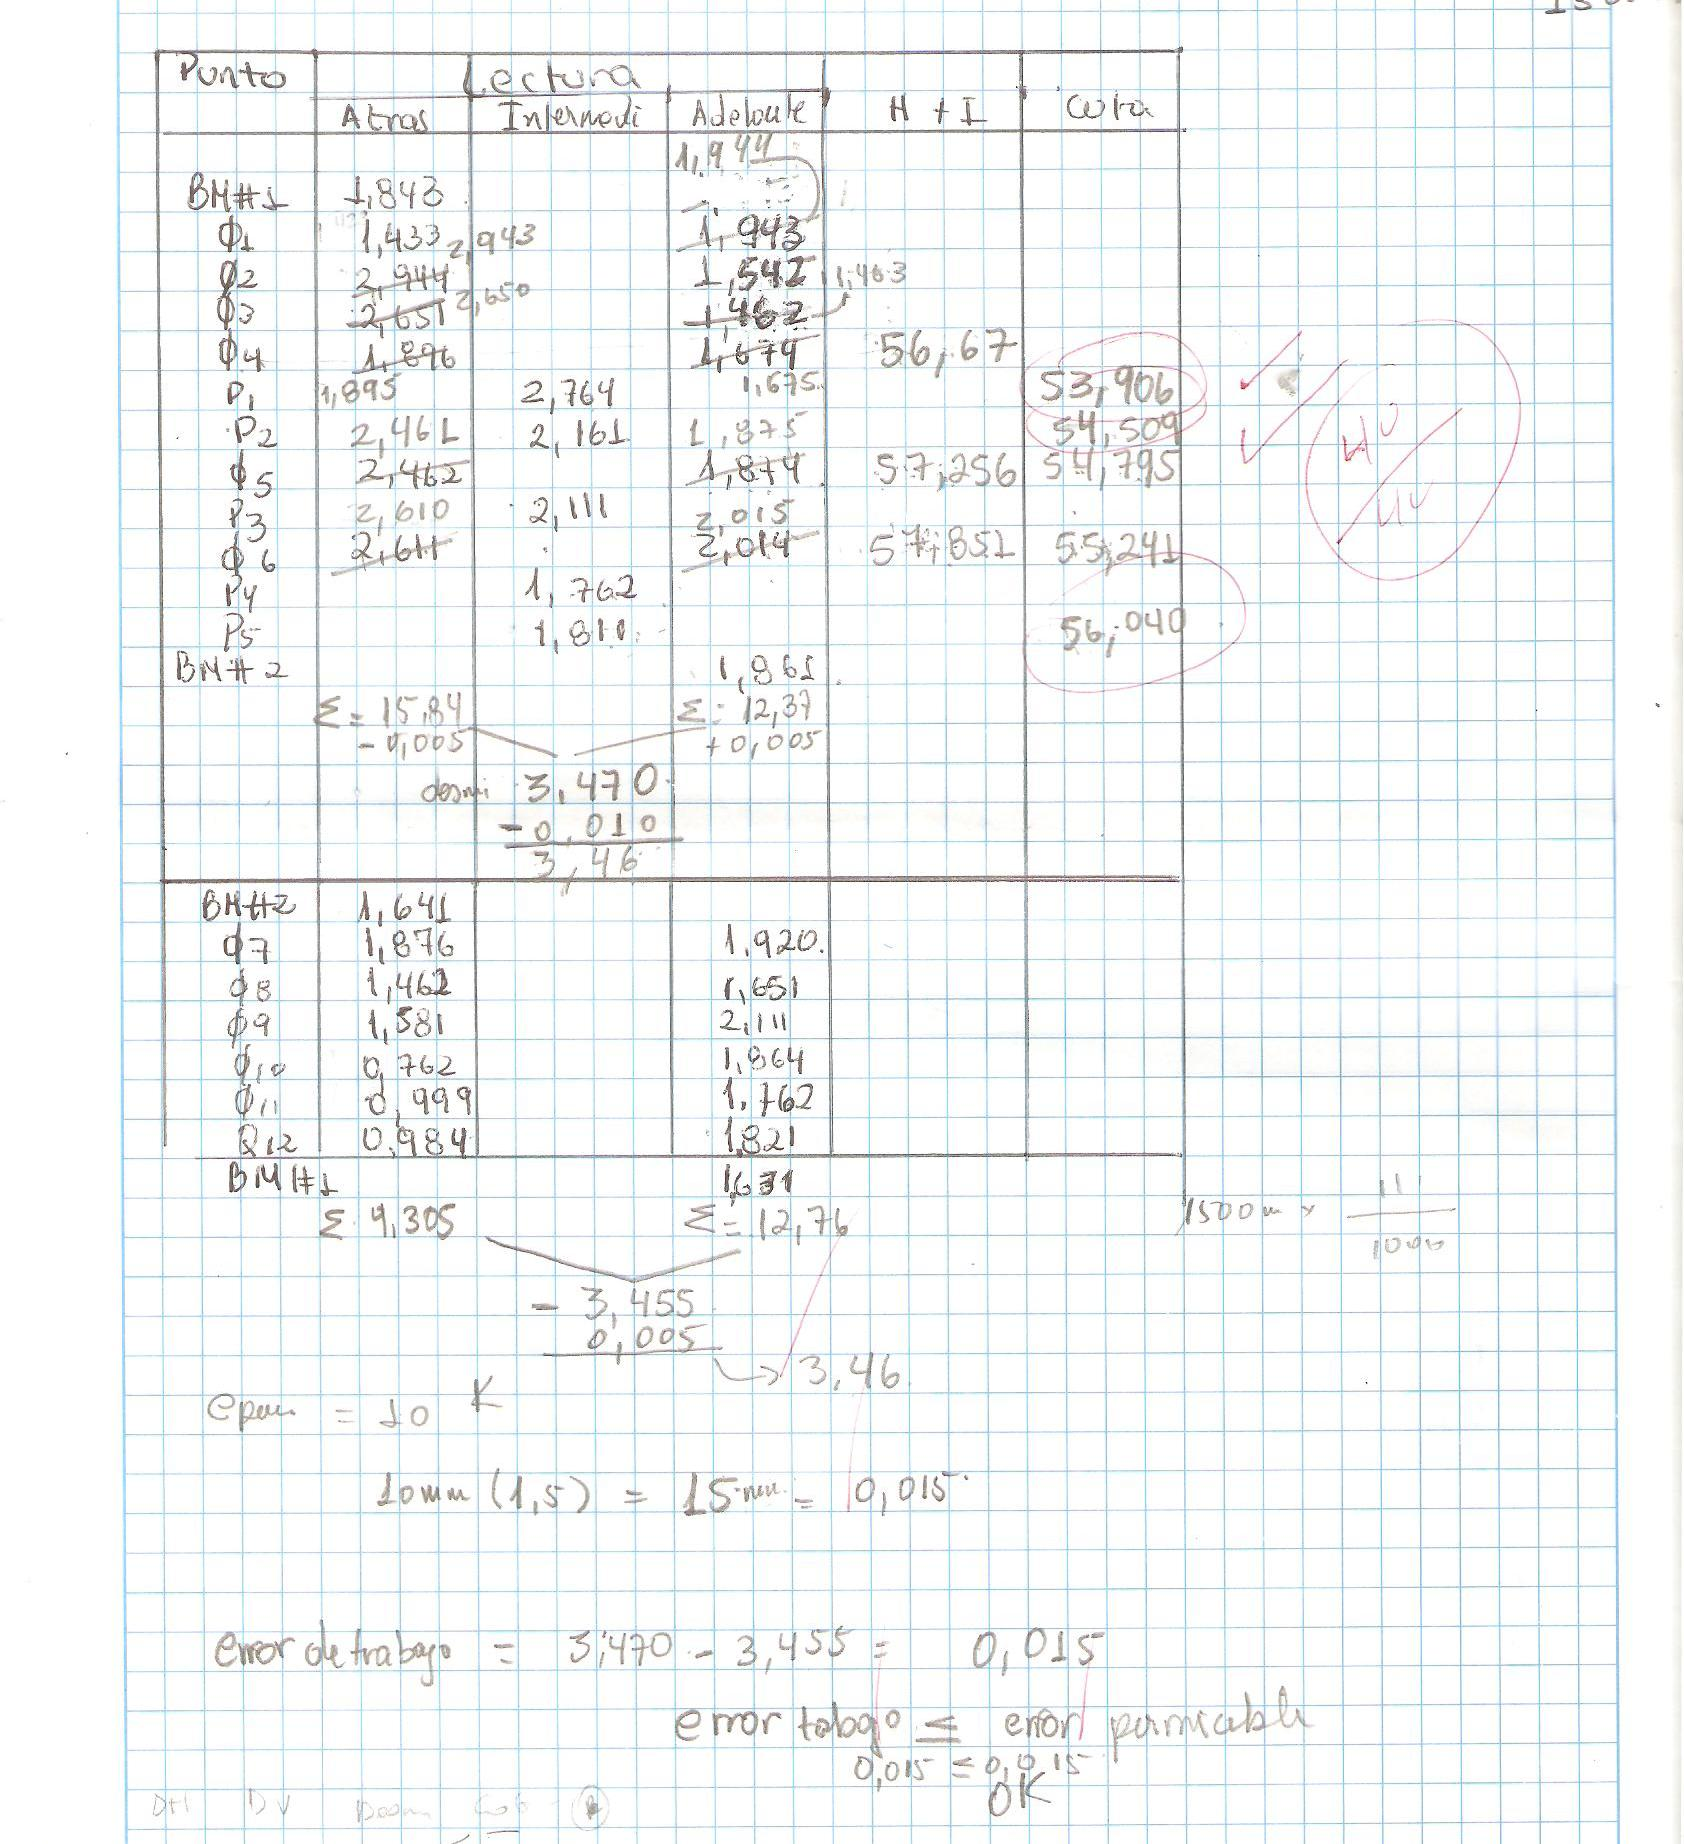 Punto Lectura
Atras Intermedi Adelante H + I Cota
1,944
BM#1 1,843
φ1 1,433 1,943
2,943
φ2 2,944 1,542 1,463
2,650
φ3 2,651 1,462
φ4 1,896 1,674 56,67
P1 1,895 2,764 1,675 53,906
P2 2,461 2,161 1,875 54,509
φ5 2,462 1,874 57,256 54,795
P3 2,610 2,111 2,015
φ6 2,611 2,014 57,851 55,241
P4 1,762
P5 1,811 56,040
BM#2 1,861
Σ = 15,84 Σ = 12,37
- 0,005 + 0,005
3,470
- 0,010
3,46
BM#2 1,641
φ7 1,876 1,920
φ8 1,462 1,651
φ9 1,581 2,111
φ10 0,762 1,864
φ11 0,999 1,762
φ12 0,984 1,821
BM#1 1,631
Σ 9,305 Σ = 12,76
1500m x
1000
- 3,455
0,005
3,46
= 10 K
10mm (1,5) = 15 mm = 0,015
error de trabajo = 3,470 - 3,455 = 0,015
error trabajo ≤ error permicable
0,015 ≤ 0,015
OK
DH DV